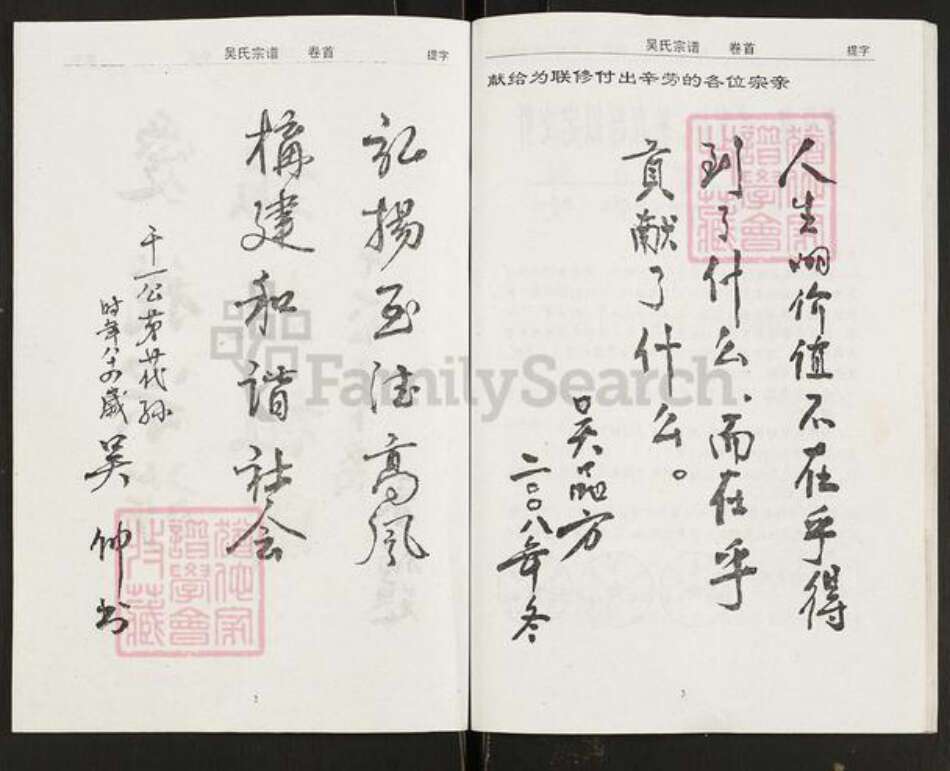 吴氏宗谱 卷首 提字
弘揚至德高风
構建和谐社会
千一公第廿代孙
时年八十四岁
吴仲書
吴氏宗谱 卷首 提字
献给为联修付出辛劳的各位宗亲
人生的价值不在乎得
到了什么、而在乎
貢献了什么。
二〇〇八年冬
FamilySearch